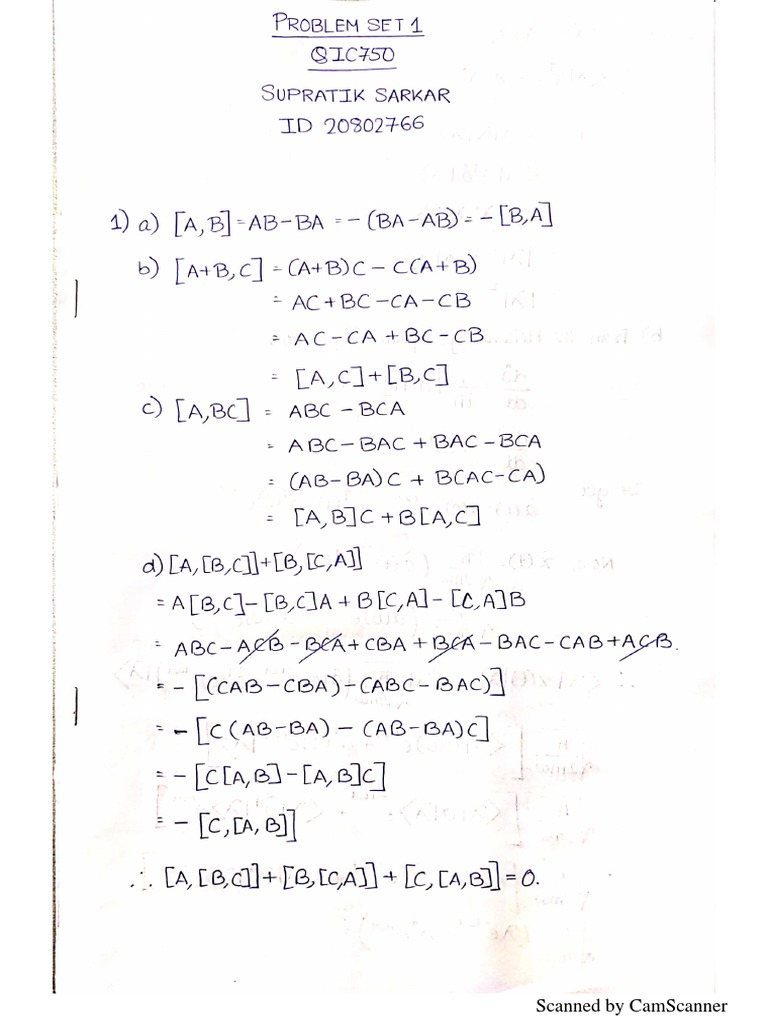 PROBLEM SET 1
QIC750
SUPRATIK SARKAR
ID 20802766
1) a) [A,B] = AB-BA = -(BA-AB) = -[B,A]
b) [A+B,C] = (A+B)C - C(A+B)
= AC+BC-CA-CB
= AC-CA+BC-CB
= [A,C]+[B,C]
c) [A,BC] = ABC-BCA
= ABC-BAC+BAC-BCA
= (AB-BA)C + B(AC-CA)
= [A,B]C+B[A,C]
d) [A,[B,C]]+[B,[C,A]]
= A[B,C]-[B,C]A+B[C,A]-[C,A]B
= ABC-ACB-BCA+CBA+BCA-BAC-CAB+ACB.
= -[(CAB-CBA)-(ABC-BAC)]
= -[C(AB-BA)-(AB-BA)C]
= -[C[A,B]-[A,B]C]
= -[C,[A,B]]
∴ [A,[B,C]]+[B,[C,A]]+[C,[A,B]]=0.
Scanned by CamScanner